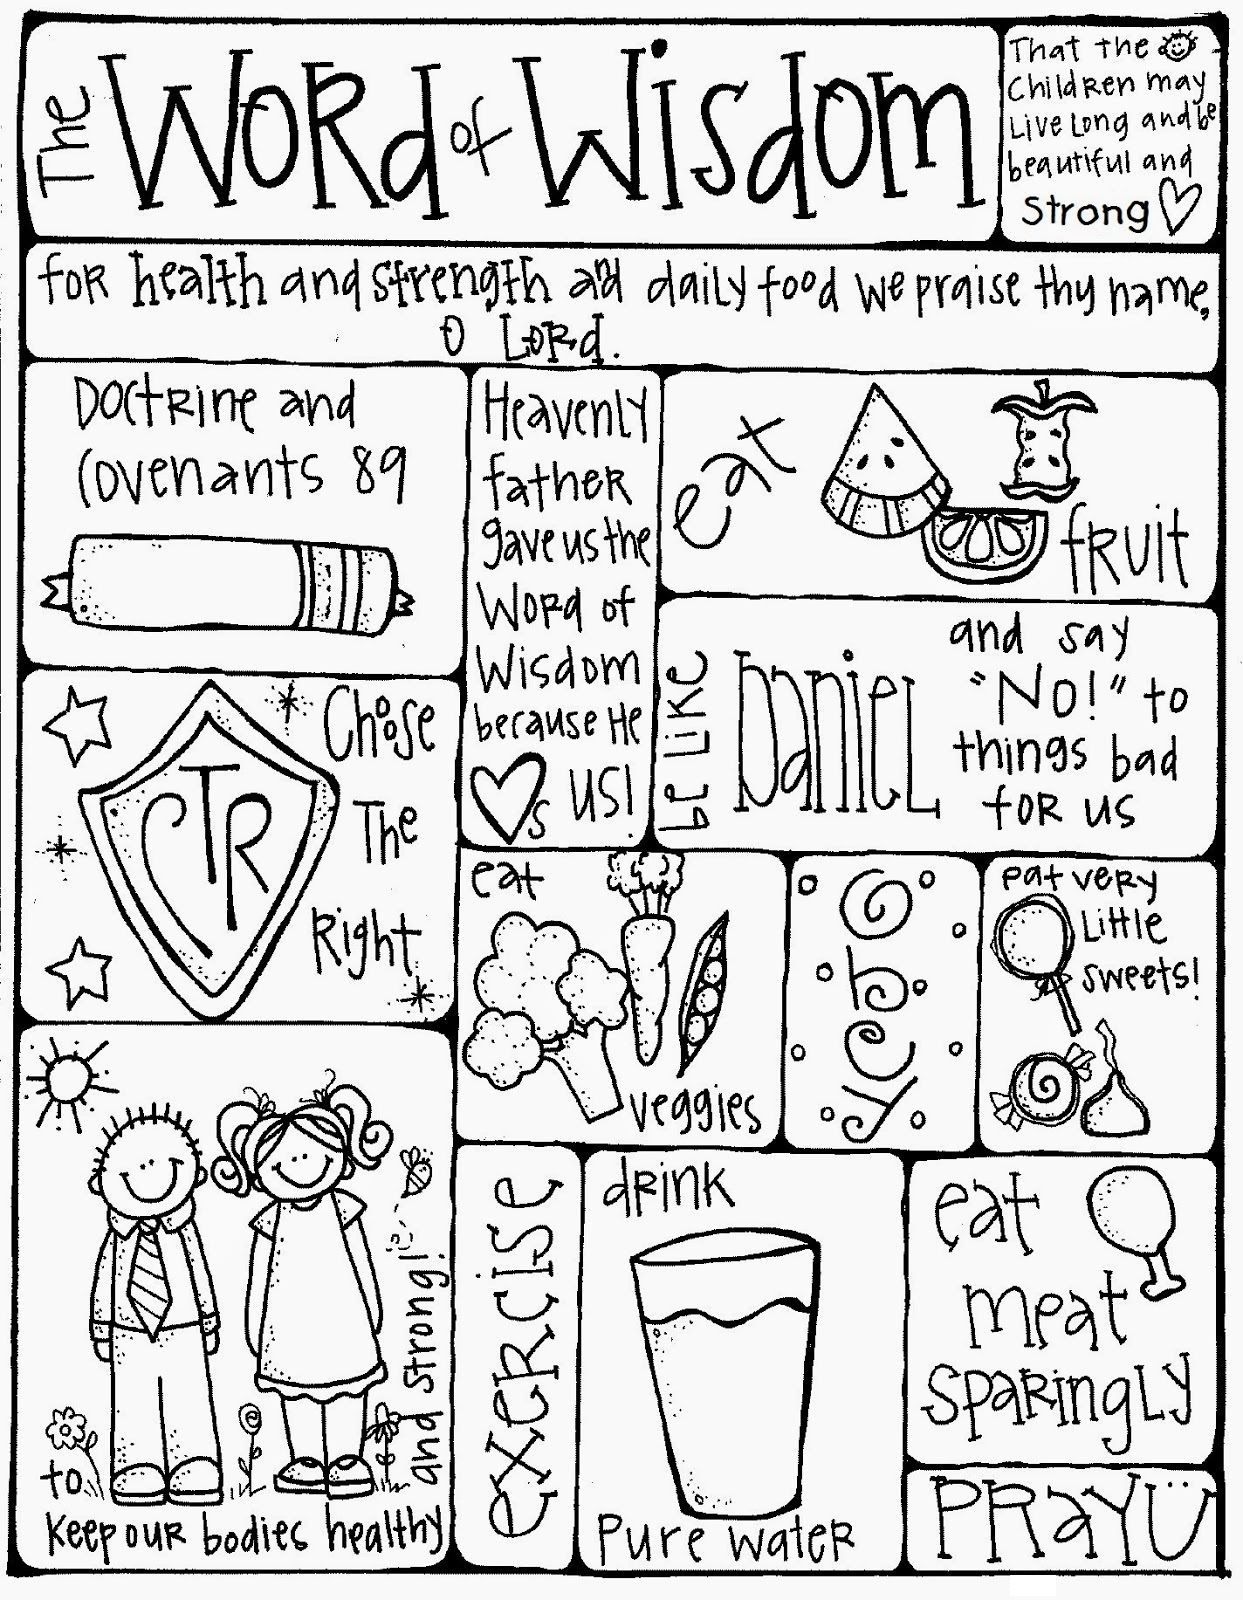 The Word of Wisdom
That the
Children may
Live Long and be
beautiful and
Strong
for health and strength and daily food we praise thy name,
O Lord.
Doctrine and
Covenants 89
Heavenly
father
gave us the
Word of
Wisdom
because He
s us!
eat
fruit
be like Daniel
and say
"No!" to
things bad
for us
CTR
Choose
The
Right
eat
veggies
yoga
eat very
Little
sweets!
to
keep our bodies healthy
and strong!
exercise
drink
Pure water
eat
meat
sparingly
PRAY